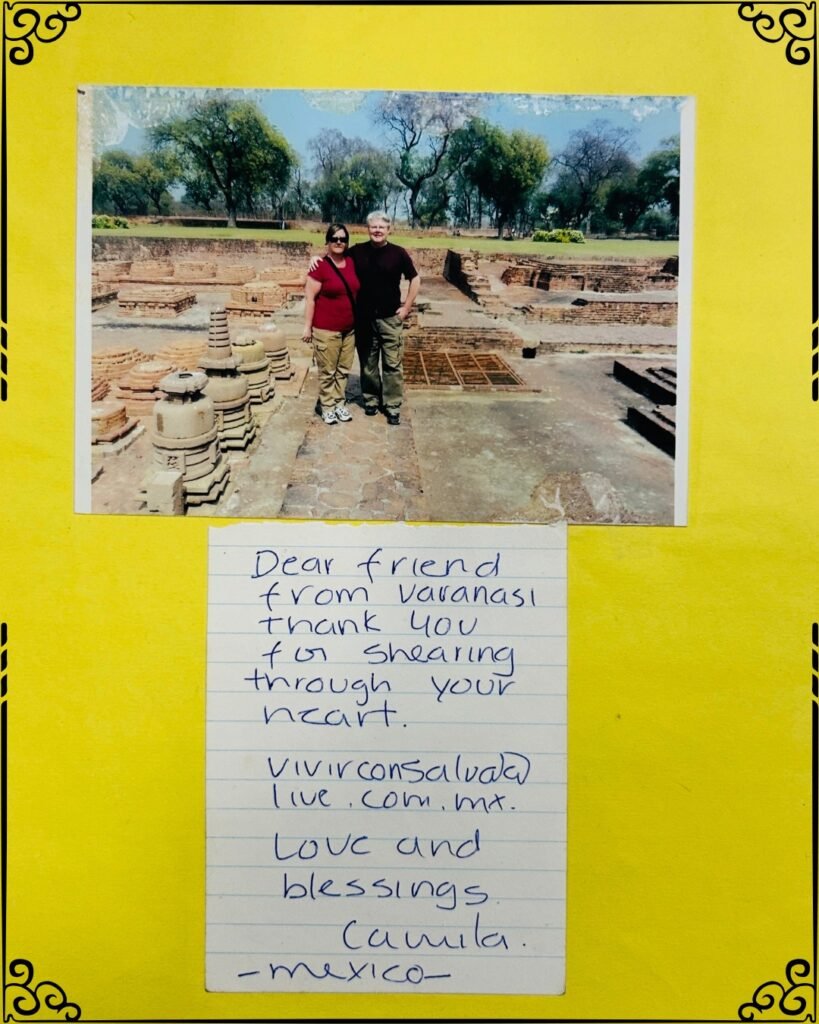 Dear friend
from varanasi
thank you
for shearing
through your
heart.
vivirconsalvada@
live.com.mx.
Love and
blessings.
Camila.
-mexico-